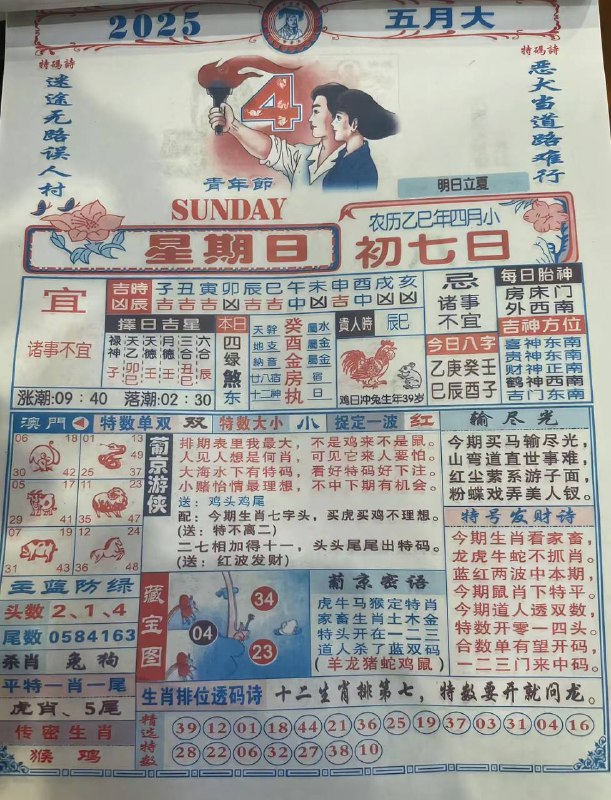 2025
五月大
特碼詩
迷途无路误人村
特碼詩
恶犬当道路难行
4
青年節
明日立夏
SUNDAY
星期日
农历乙巳年四月小
初七日
宜
诸事不宜
吉時 子丑寅卯辰巳午未申酉戌亥
凶辰 吉吉吉凶吉吉中凶吉中凶凶
忌
诸事不宜
每日胎神
房床门
外西南
擇日吉星
禄神 子
天乙 卯巳
天德 壬
月德 壬
三合 丑巳
六合 辰
本日
四绿
煞东
天幹 癸 屬水
地支 酉 屬金
納音 金 屬金
廿八宿 房 宿
十二神 执 日
貴人時 辰巳
鸡日冲兔生年39岁
今日八字
乙庚癸壬
巳辰酉子
吉神方位
喜神东南
贵神东南
财神正南
鹤神西南
吉门东南
涨潮:09:40 落潮:02:30
澳門
特数单双 双 特数大小 小 捉定一波 红
06 18
30 42
01 13
25 37 49
05 17
29 41
11 23
35 47
07 19
31 43
12 24
36 48
葡京游侠
排期表里我最大，不是鸡来不是鼠。
人见人想是何肖，可见它来人要怕。
大海水下有特码，看好特码好下注。
小赌怡情最理想，不中下期有机会。
送：鸡头鸡尾
配：今期生肖七字头，买虎买鸡不理想。
(送：特不离二)
二七相加得十一，头头尾尾出特码。
(送：红波发财)
输尽光
今期买马输尽光，
山弯道直世事难，
红尘萦系游子面，
粉蝶戏弄美人钗。
特号发财诗
今期生肖看家畜，
龙虎牛蛇不抓肖。
蓝红两波中本期，
今期鼠肖下特平。
今期道人透双数，
特数开零一四头。
合数单有望开码，
一二三门来中码。
主蓝防绿
头数 2、1、4
尾数 0584163
杀肖 兔 狗
平特一肖一尾
虎肖、5尾
传密生肖
猴 鸡
藏宝图
34
04
23
葡京密语
虎牛马猴定特肖
家畜生肖土木金
特头开在一二三
道人杀了蓝双码
(羊龙猪蛇鸡鼠)
生肖排位透码诗 十二生肖排第七，特数要开就问龙。
精选特数
39 12 01 18 44 21 36 25 19 37 03 31 04 16
28 22 06 32 27 38 10